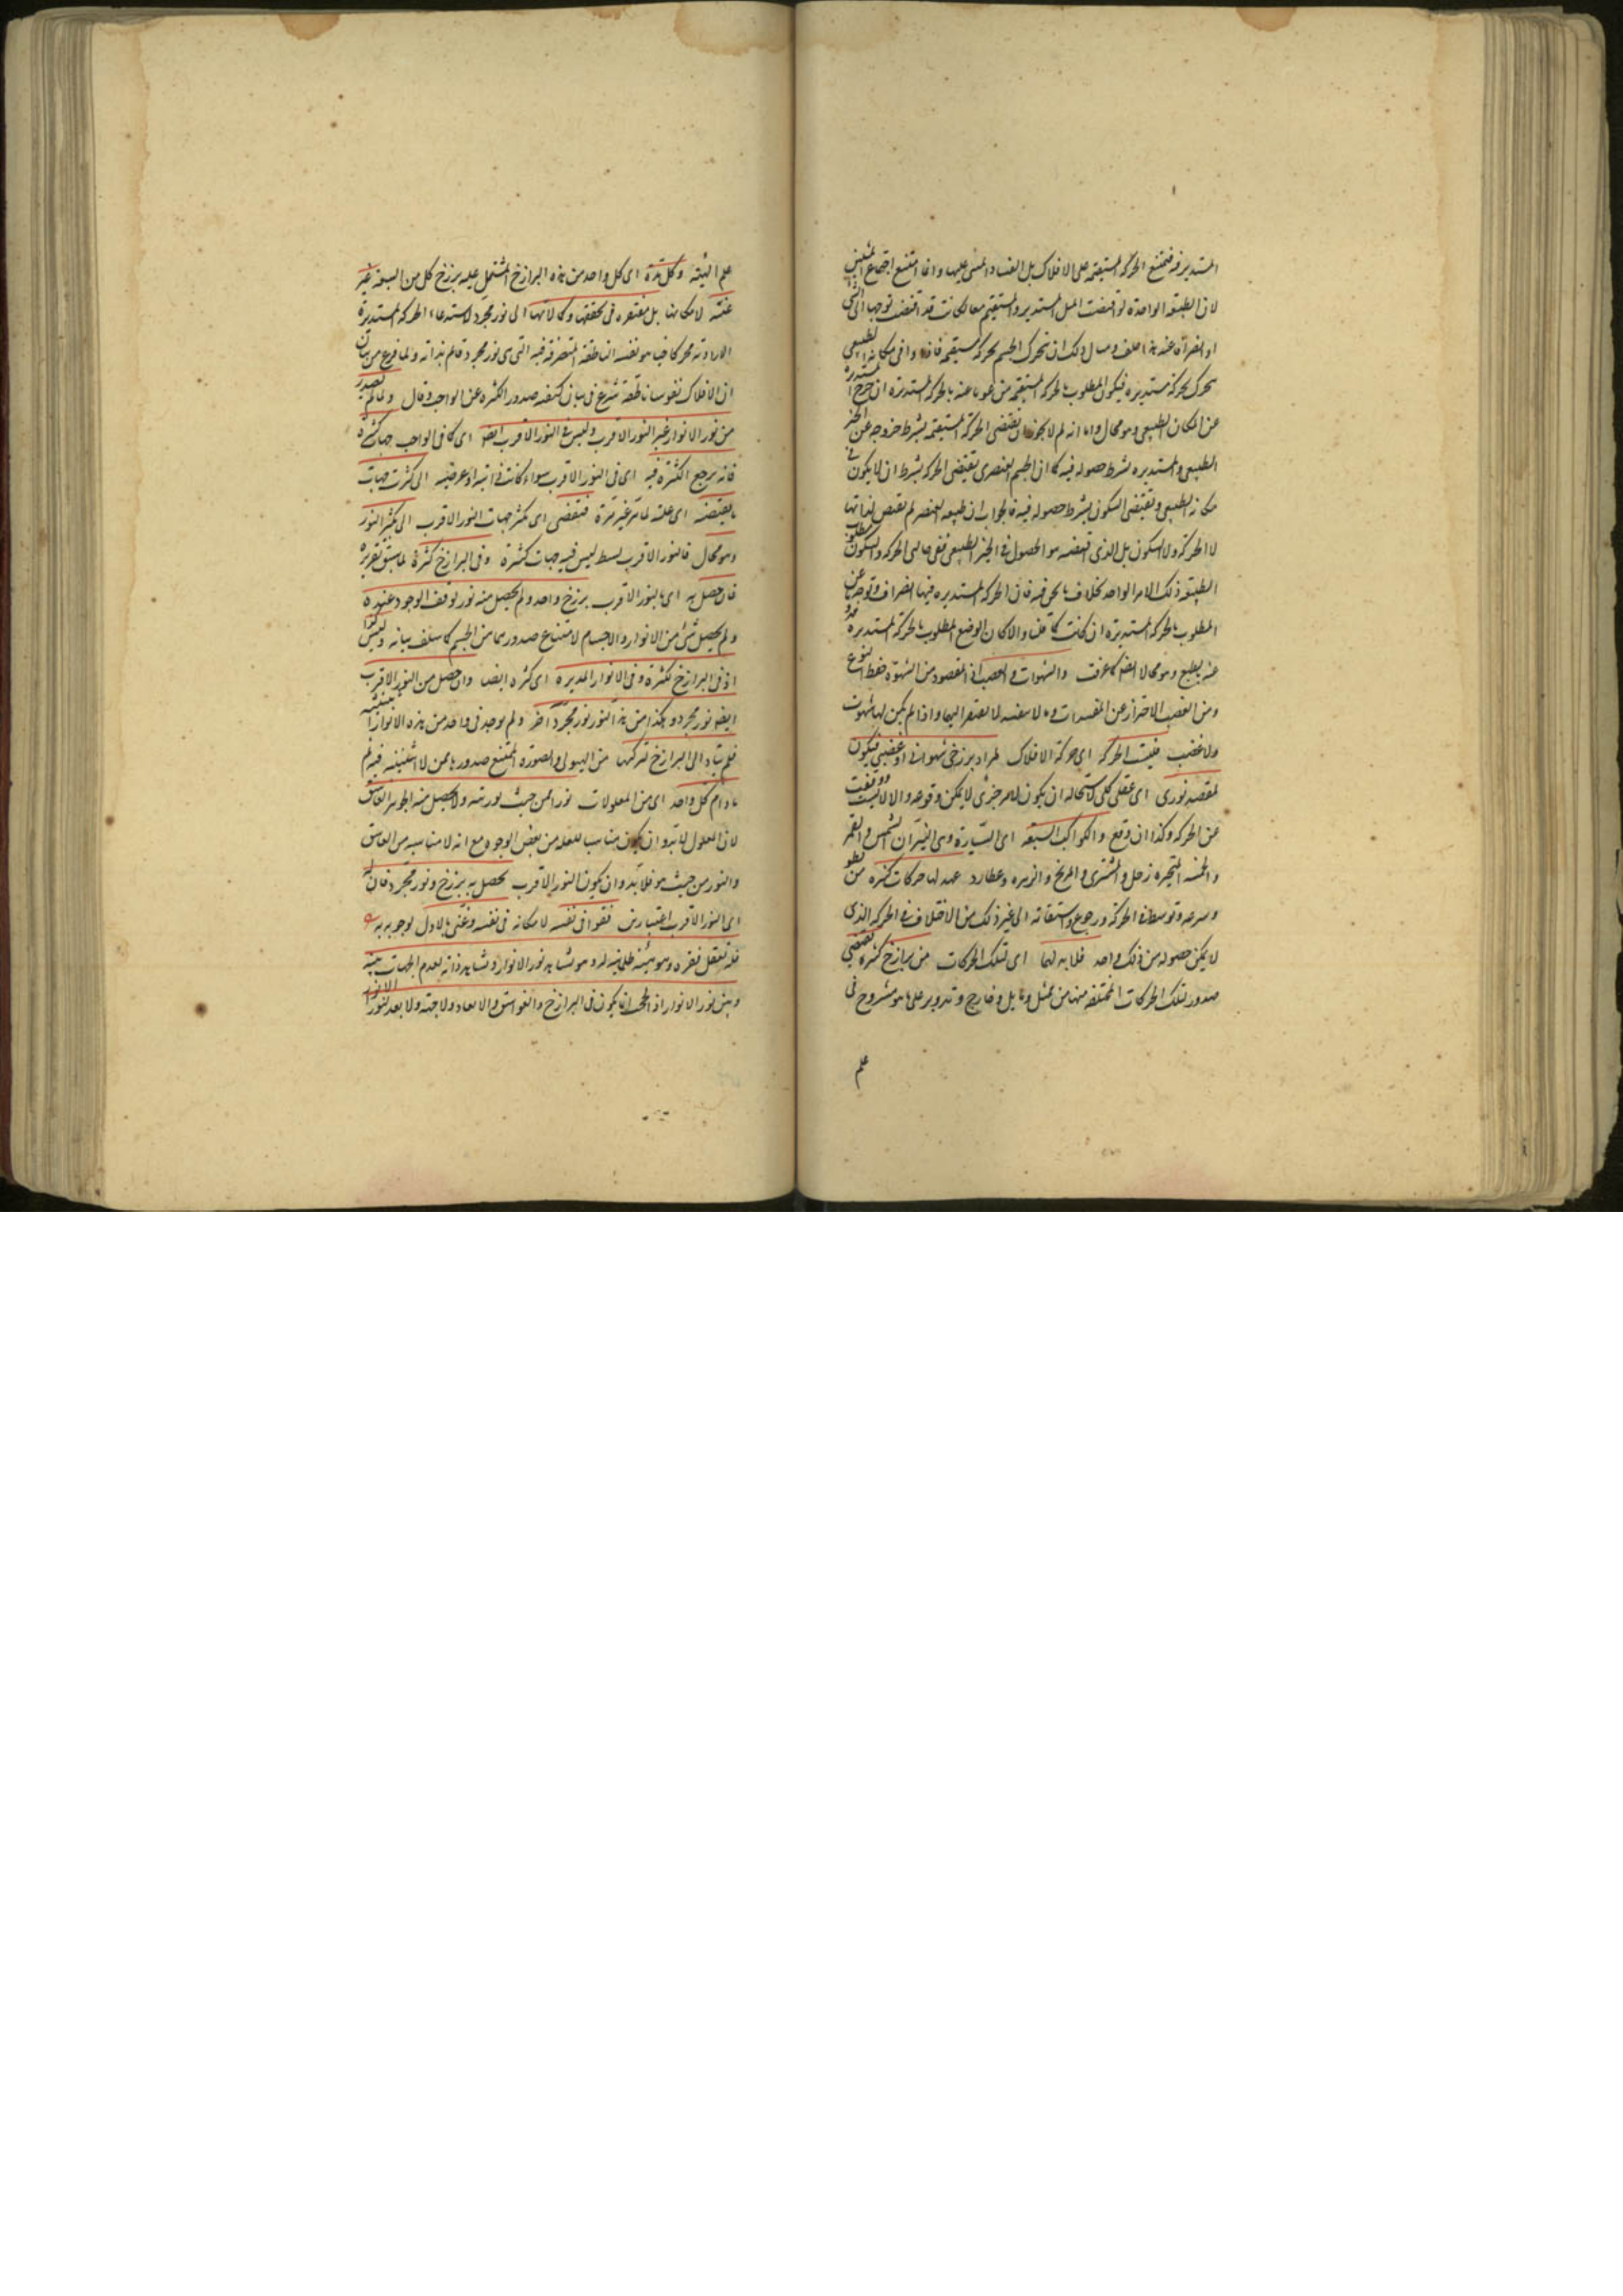 المستدير فيه فيمتنع الحركة المستقيمة على الافلاك بل الفساد المبنى عليها وانما امتنع اجتماع الميلين
لان الطبيعة الواحدة لو اقتضت الميل المستدير والمستقيم معا لكانت قد اقتضت توجها الى شىء
او انصرافا عنه هذا خلف ومثال ذلك ان تحرك الجسم بحركة مستقيمة فاذا وافى مكانه الطبيعى
تحرك بحركة مستديرة فيكون المطلوب بالحركة المستقيمة مرغوبا عنه بالحركة المستديرة ان خرج المستدير
عن المكان الطبيعى وهو محال واما انه لم لا يجوز ان يقتضى الحركة المستقيمة بشرط خروجه عن الحيز
الطبيعى والمستديرة بشرط حصوله فيه كما ان الجسم العنصرى يقتضى الحركة بشرط ان لا يكون فى
مكانه الطبيعى ويقتضى السكون بشرط حصوله فيه فالجواب ان طبيعة العنصر لم تقتض لذاتها
لا الحركة ولا السكون بل الذى تقتضيه هو الحصول فى الحيز الطبيعى ففى حالتى الحركة والسكون مطلوب
الطبيعة ذلك الامر الواحد بخلاف ما نحن فيه فان الحركة المستديرة فيها انصراف وتوجه عن
المطلوب بالحركة المستديرة ان كانت كما قلنا والا كان الوضع المطلوب بالحركة المستديرة
عنه بطبع وهو محال ايضا كما عرفت والشهوات والغضب اذ المقصود من الشهوة حفظ النوع
ومن الغضب الاحتراز عن المفسدات وما لا يفسد لا يفتقر اليهما واذا لم يكن لها شهوت
ولا غضب فليست الحركة اى حركة الافلاك لمراد برزخى شهوانى او غضبى فيكون
لمقصد نورى اى عقلى كلى لاستحالة ان يكون لامر جزئى لا يمكن وقوعه والا لا نبت ووقفت
عن الحركة وكذا ان وقع والكواكب السبعة اى السيارة وهى النيران الشمس والقمر
والخمسة المتحيرة زحل والمشترى والمريخ والزهرة وعطارد عهد لها حركات كثيرة من بطو
وسرعة وتوسط فى الحركة ورجوع واستقامة الى غير ذلك من الاختلاف فى الحركة الذى
لا يمكن حصوله من فلك واحد فلا بد لها اى لتلك الحركات من برازخ كثيرة تقتضى
صدور تلك الحركات المختلفة منها من ممثل ومايل وخارج وتدوير على ما هو مشروح فى
علم
علم الهيئة وكل هذه اى كل واحد من هذه البرازخ المشتمل عليه برزخ كل من السبعة غير
غنية لامكانها بل مفتقرة فى تحققها وكمالاتها الى نور مجرد لاستدعاء الحركة المستديرة
الارادية محركا حيا هو نفسه الناطقة المتصرفة فيه التى هى نور مجرد قائم بذاته ولما فرغ من بيان
ان للافلاك نفوسا ناطقة شرع فى بيان كيفية صدور الكثرة عن الواجب وقال ولما لم يصدر
من نور الانوار غير النور الاقرب وليس فى النور الاقرب ايضا اى كما فى الواجب جهات كثيرة
فانه يرجع الكثرة فيه اى فى النور الاقرب سواء كانت ذاتية او عرضية الى كثرت جهات
ما يقتضيه اى علته لما مر غير مرة فيقتضى اى تكثر جهات النور الاقرب الى تكثر النور
وهو محال فالنور الاقرب بسيط ليس فيه جهات كثيرة وفى البرازخ كثرة لما سبق تقريره
فان حصل به اى بالنور الاقرب برزخ واحد ولم يحصل منه نور لوقف الوجود عنده
ولم يحصل شىء من الانوار والاجسام لامتناع صدورهما من الجسم كما سلف بيانه وليس كذا
اذ فى البرازخ كثرة وفى الانوار المدبرة اى كثرة ايضا وان حصل من النور الاقرب
ايضا نور مجرد وهكذا من هذا النور نور مجرد آخر ولم يوجد فى واحد من هذه الانوار
فلم يتأد الى البرازخ لتركبها من الهيولى والصورة الممتنع صدورهما ممن لا اثنينية فيه ثم
ما دام كل واحد اى من المعلولات نورا من حيث نوريته ولا يحصل منه الجوهر الغاسق
لان المعلول لا بد وان يكون مناسبا للعلة من بعض الوجوه مع انه لا مناسبة بين الغاسق
والنور من حيث هو فلا بد وان يكون النور الاقرب يحصل به برزخ ونور مجرد فان له
اى للنور الاقرب اعتبارين فقرا فى نفسه لامكانه فى نفسه وغنى بالاول لوجوبه به
فله تعقل فقره وهو هيئة ظلمانية له وهو يشاهد نور الانوار ويشاهد ذاته لعدم الحجاب بينه
وبين نور الانوار اذ الحجاب انما يكون فى البرازخ والغواسق والابعاد ولا جهة ولا بعد لنور الانوار